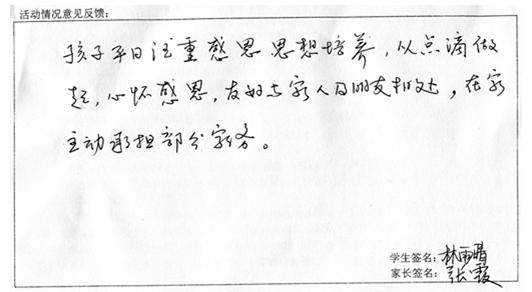 活动情况意见反馈:
孩子平日注重感恩思想培养，从点滴做
起，心怀感恩，友好与家人同朋友相处，在家
主动承担部分家务。
学生签名：林雨晴
家长签名：张霞